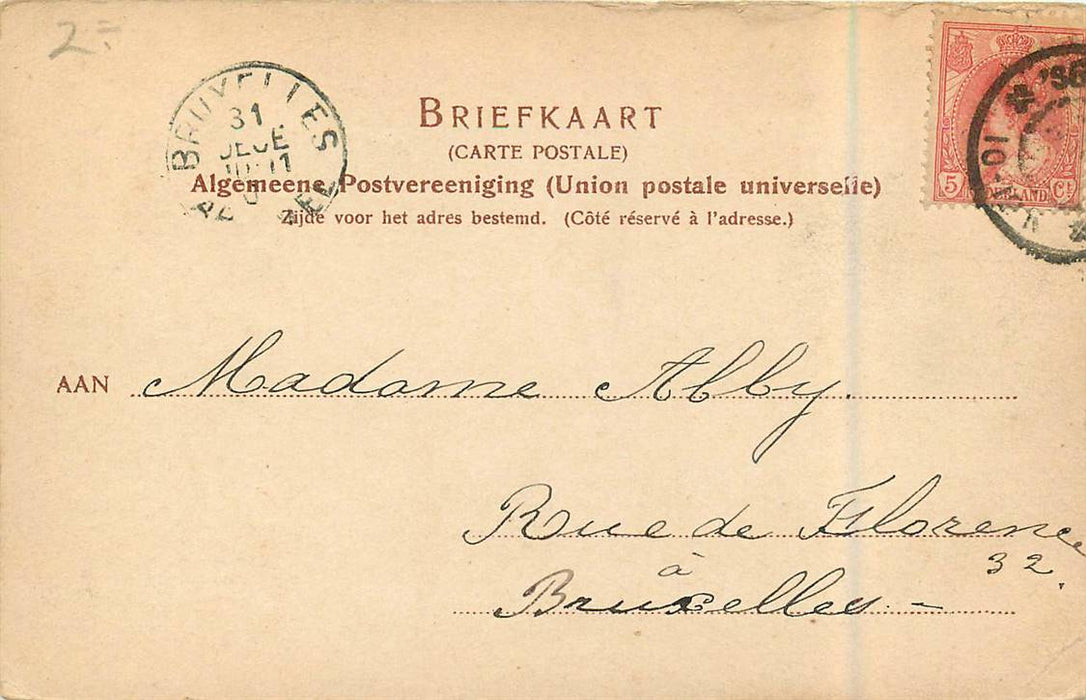 2=
BRUXELLES
31
BRIEFKAART
(CARTE POSTALE)
Algemeene Postvereeniging (Union postale universelle)
Zijde voor het adres bestemd. (Côté réservé à l'adresse.)
5 NEDERLAND Ct
AAN Madame Abby.
Rue de Florence
à 32.
Bruxelles-